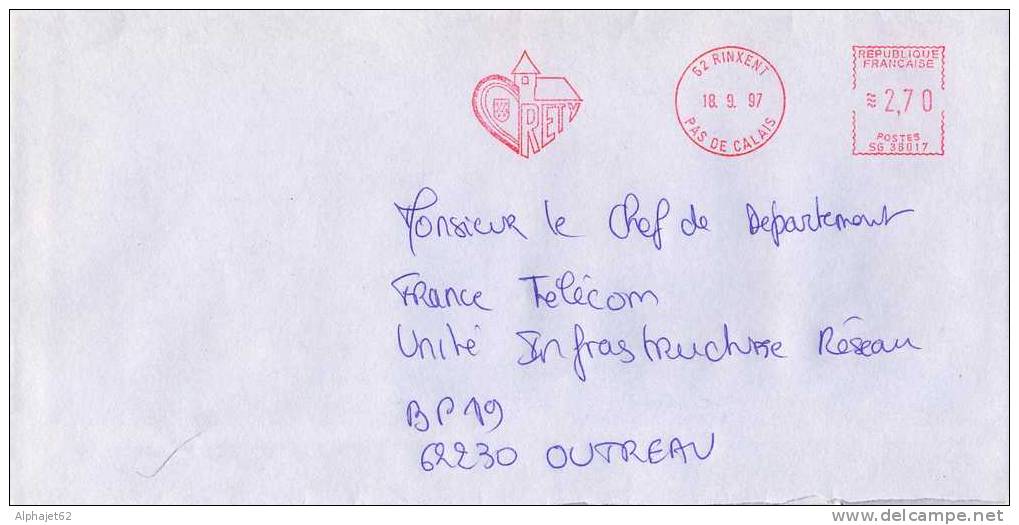 RETY
62 RINXENT
18. 9. 97
PAS DE CALAIS
REPUBLIQUE
FRANCAISE
≈ 2,70
POSTES
SG 38017
Monsieur le Chef de Departement
France Telécom
Unité Infrastructure Réseau
BP 19
62230 OUTREAU
Alphajet62
delcampe.net